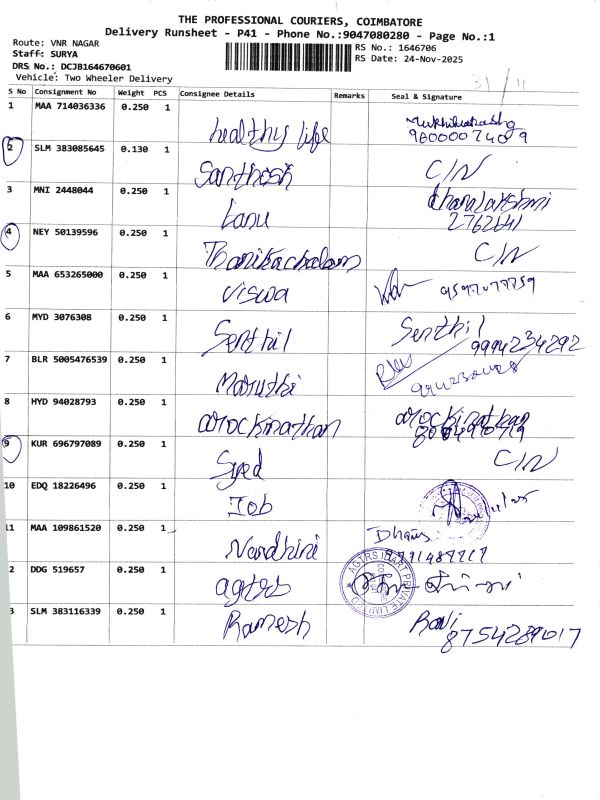 THE PROFESSIONAL COURIERS, COIMBATORE
Delivery Runsheet - P41 - Phone No.:9047080280 - Page No.:1
Route: VNR NAGAR
Staff: SURYA
DRS No.: DCJB164670601
Vehicle: Two Wheeler Delivery
RS No.: 1646706
RS Date: 24-Nov-2025
31/11
S No Consignment No Weight PCS Consignee Details Remarks Seal & Signature
1 MAA 714036336 0.250 1 healthy life
9600007409
2 SLM 383085645 0.130 1 Santhosh C/N
3 MNI 2448044 0.250 1 dhanalakshmi
2762641
4 NEY 50139596 0.250 1 Thanikachalam C/N
5 MAA 653265000 0.250 1 viswa
6 MYD 3076308 0.250 1 Senthil Senthil
9994234292
7 BLR 5005476539 0.250 1 Maruthi
8 HYD 94028793 0.250 1 arockinathan arockinathan
9 KUR 696797089 0.250 1 Syed C/N
10 EDQ 18226496 0.250 1 Job
11 MAA 109861520 0.250 1 Nandhini
2 DDG 519657 0.250 1 agtrs
AGTRS MART PRIVATE LIMITED
3 SLM 383116339 0.250 1 Ramesh Ravi
8754289017